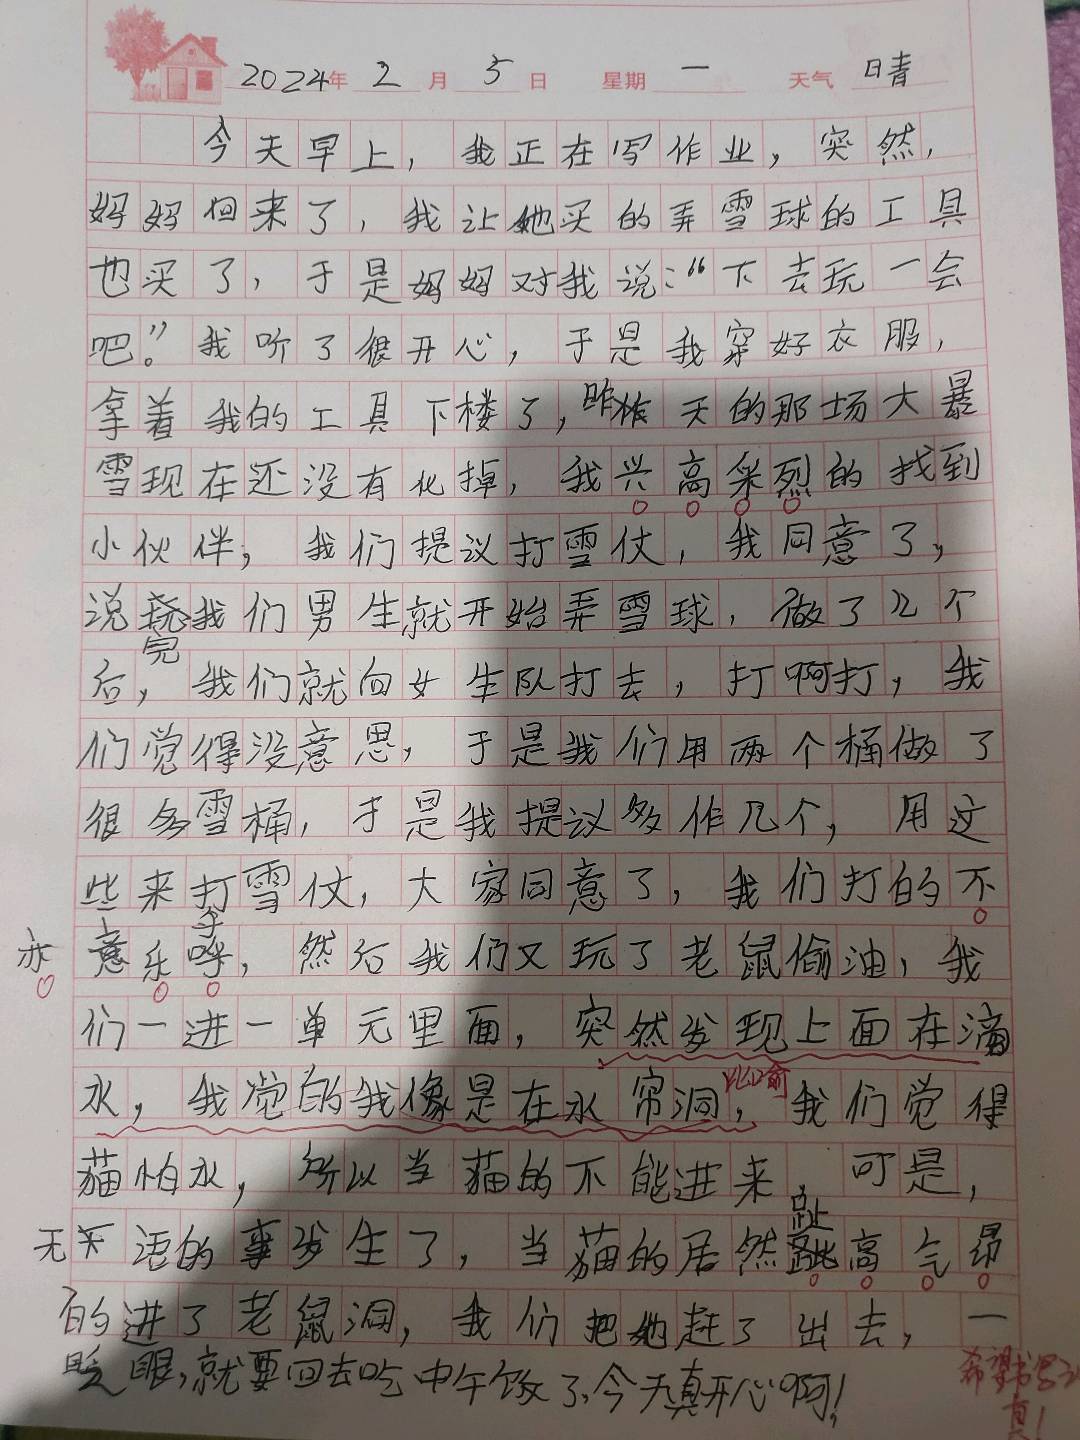 2024年 2 月 5 日 星期 一 天气 晴
今天早上，我正在写作业，突然，
妈妈回来了，我让她买的弄雪球的工具
也买了，于是妈妈对我说：“下去玩一会
吧。”我听了很开心，于是我穿好衣服，
拿着我的工具下楼了，昨天的那场大暴
雪现在还没有化掉，我兴高采烈的找到
小伙伴，我们提议打雪仗，我同意了，
说完我们男生就开始弄雪球，做了几个
后，我们就向女生队打去，打啊打，我
们觉得没意思，于是我们用两个桶做了
很多雪桶，于是我提议多作几个，用这
些来打雪仗，大家同意了，我们打的不
亦乐乎，然后我们又玩了老鼠偷油，我
们一进一单元里面，突然发现上面在滴
水，我觉的我像是在水帘洞，我们觉得
比喻
猫怕水，所以当猫的不能进来，可是，
无语的事发生了，当猫的居然趾高气昂
的进了老鼠洞，我们把她赶了出去，一
眨眼，就要回去吃中午饭了，今天真开心啊！
希望书写认
真！